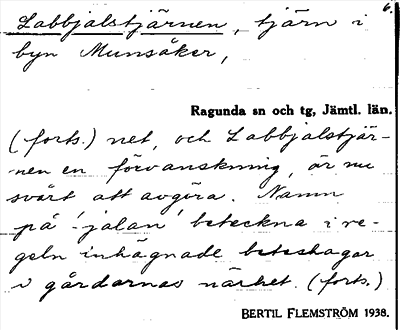 6.
Labbjalstjärnen, tjärn i
byn Munsåker,
Ragunda sn och tg, Jämtl. län.
(forts.) net, och Labbjalstjär-
nen en förvanskning, är nu
svårt att avgöra. Namn
på '-jalan' beteckna i re-
geln inhägnade beteshagar
i gårdarnas närhet. (forts.)
BERTIL FLEMSTRÖM 1938.